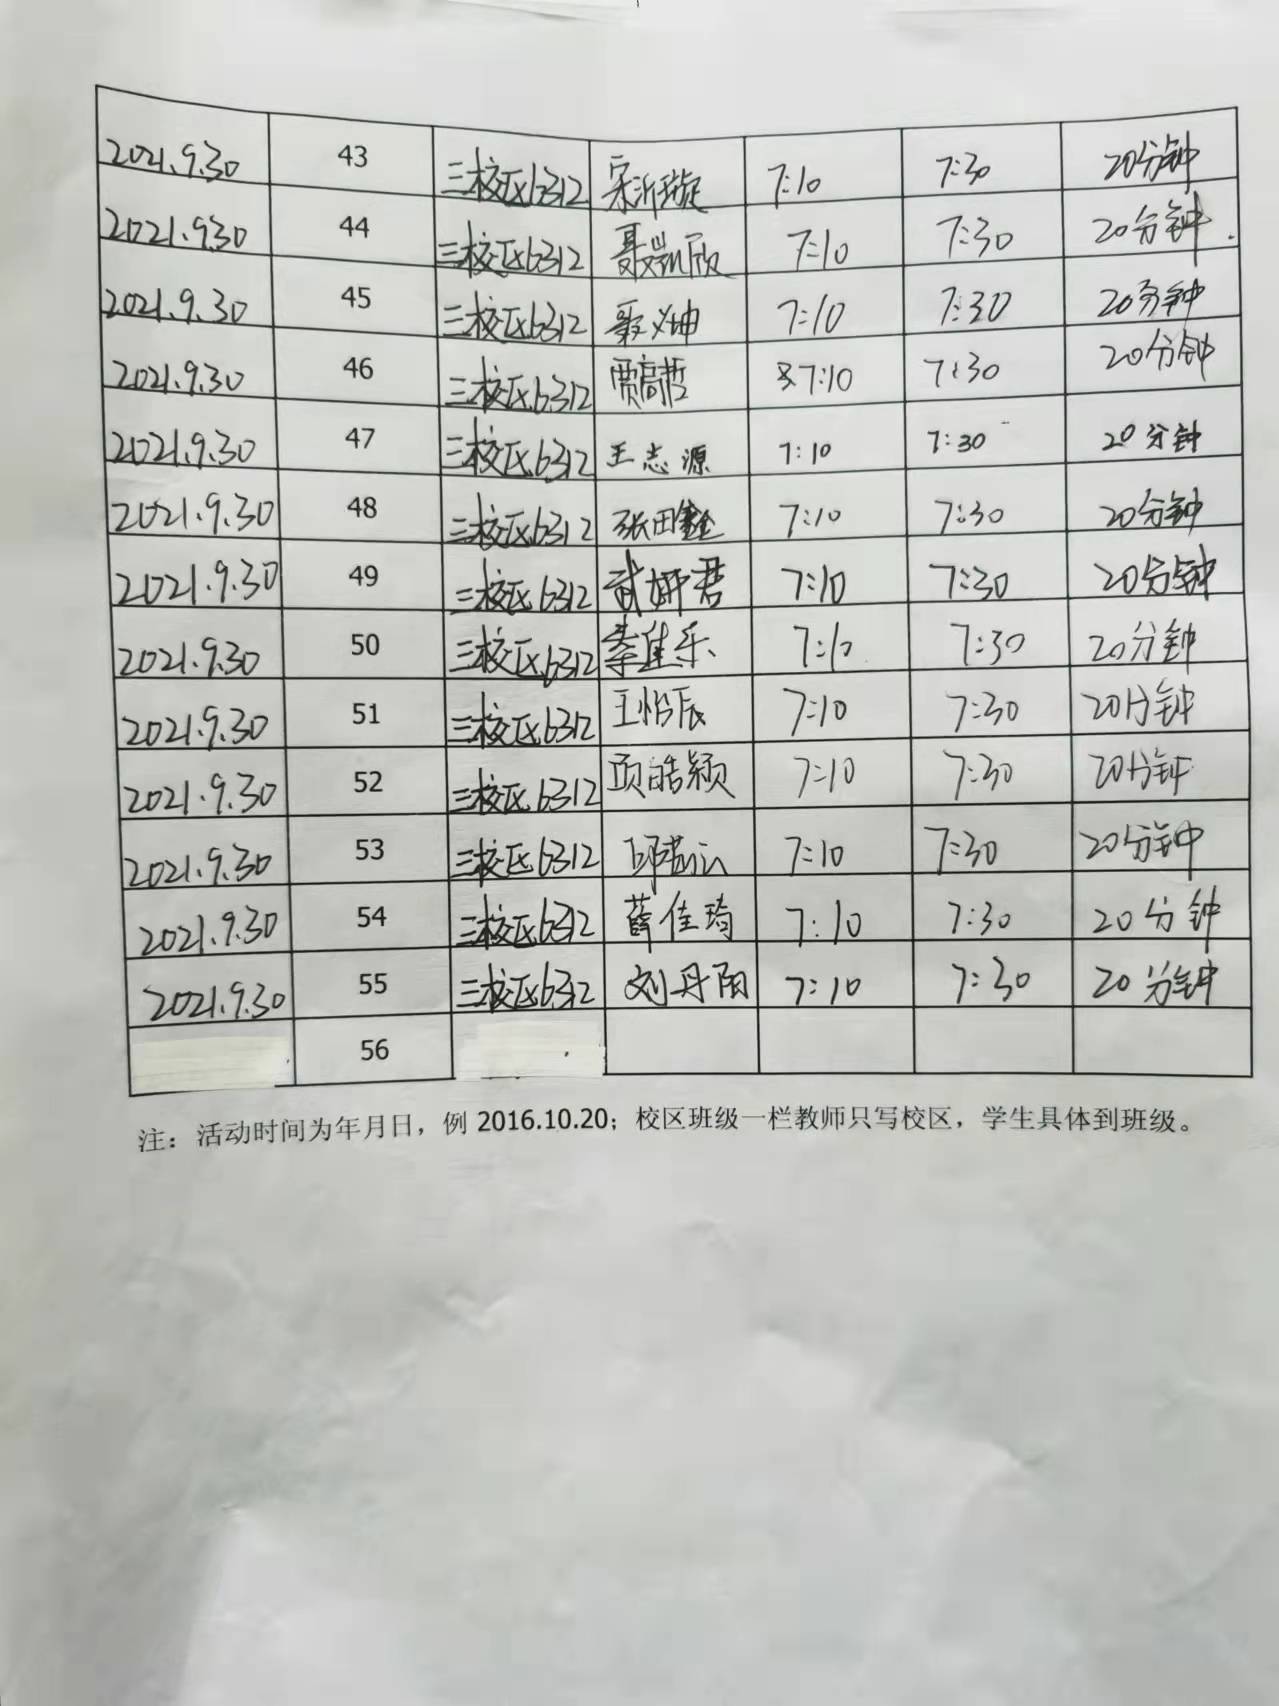 2021.9.30 43 三校区6312 宋沂璇 7:10 7:30 20分钟
2021.9.30 44 三校区6312 聂凯欣 7:10 7:30 20分钟
2021.9.30 45 三校区6312 义坤 7:10 7:30 20分钟
2021.9.30 46 三校区6312 贾高哲 7:10 7:30 20分钟
2021.9.30 47 三校区6312 王志源 7:10 7:30 20分钟
2021.9.30 48 三校区6312 张田鑫 7:10 7:30 20分钟
2021.9.30 49 三校区6312 武妍君 7:10 7:30 20分钟
2021.9.30 50 三校区6312 佳乐 7:10 7:30 20分钟
2021.9.30 51 三校区6312 王怡辰 7:10 7:30 20分钟
2021.9.30 52 三校区6312 项皓颖 7:10 7:30 20分钟
2021.9.30 53 三校区6312 7:10 7:30 20分钟
2021.9.30 54 三校区6312 薛佳琦 7:10 7:30 20分钟
2021.9.30 55 三校区6312 刘丹阳 7:10 7:30 20分钟
56
注：活动时间为年月日，例 2016.10.20；校区班级一栏教师只写校区，学生具体到班级。